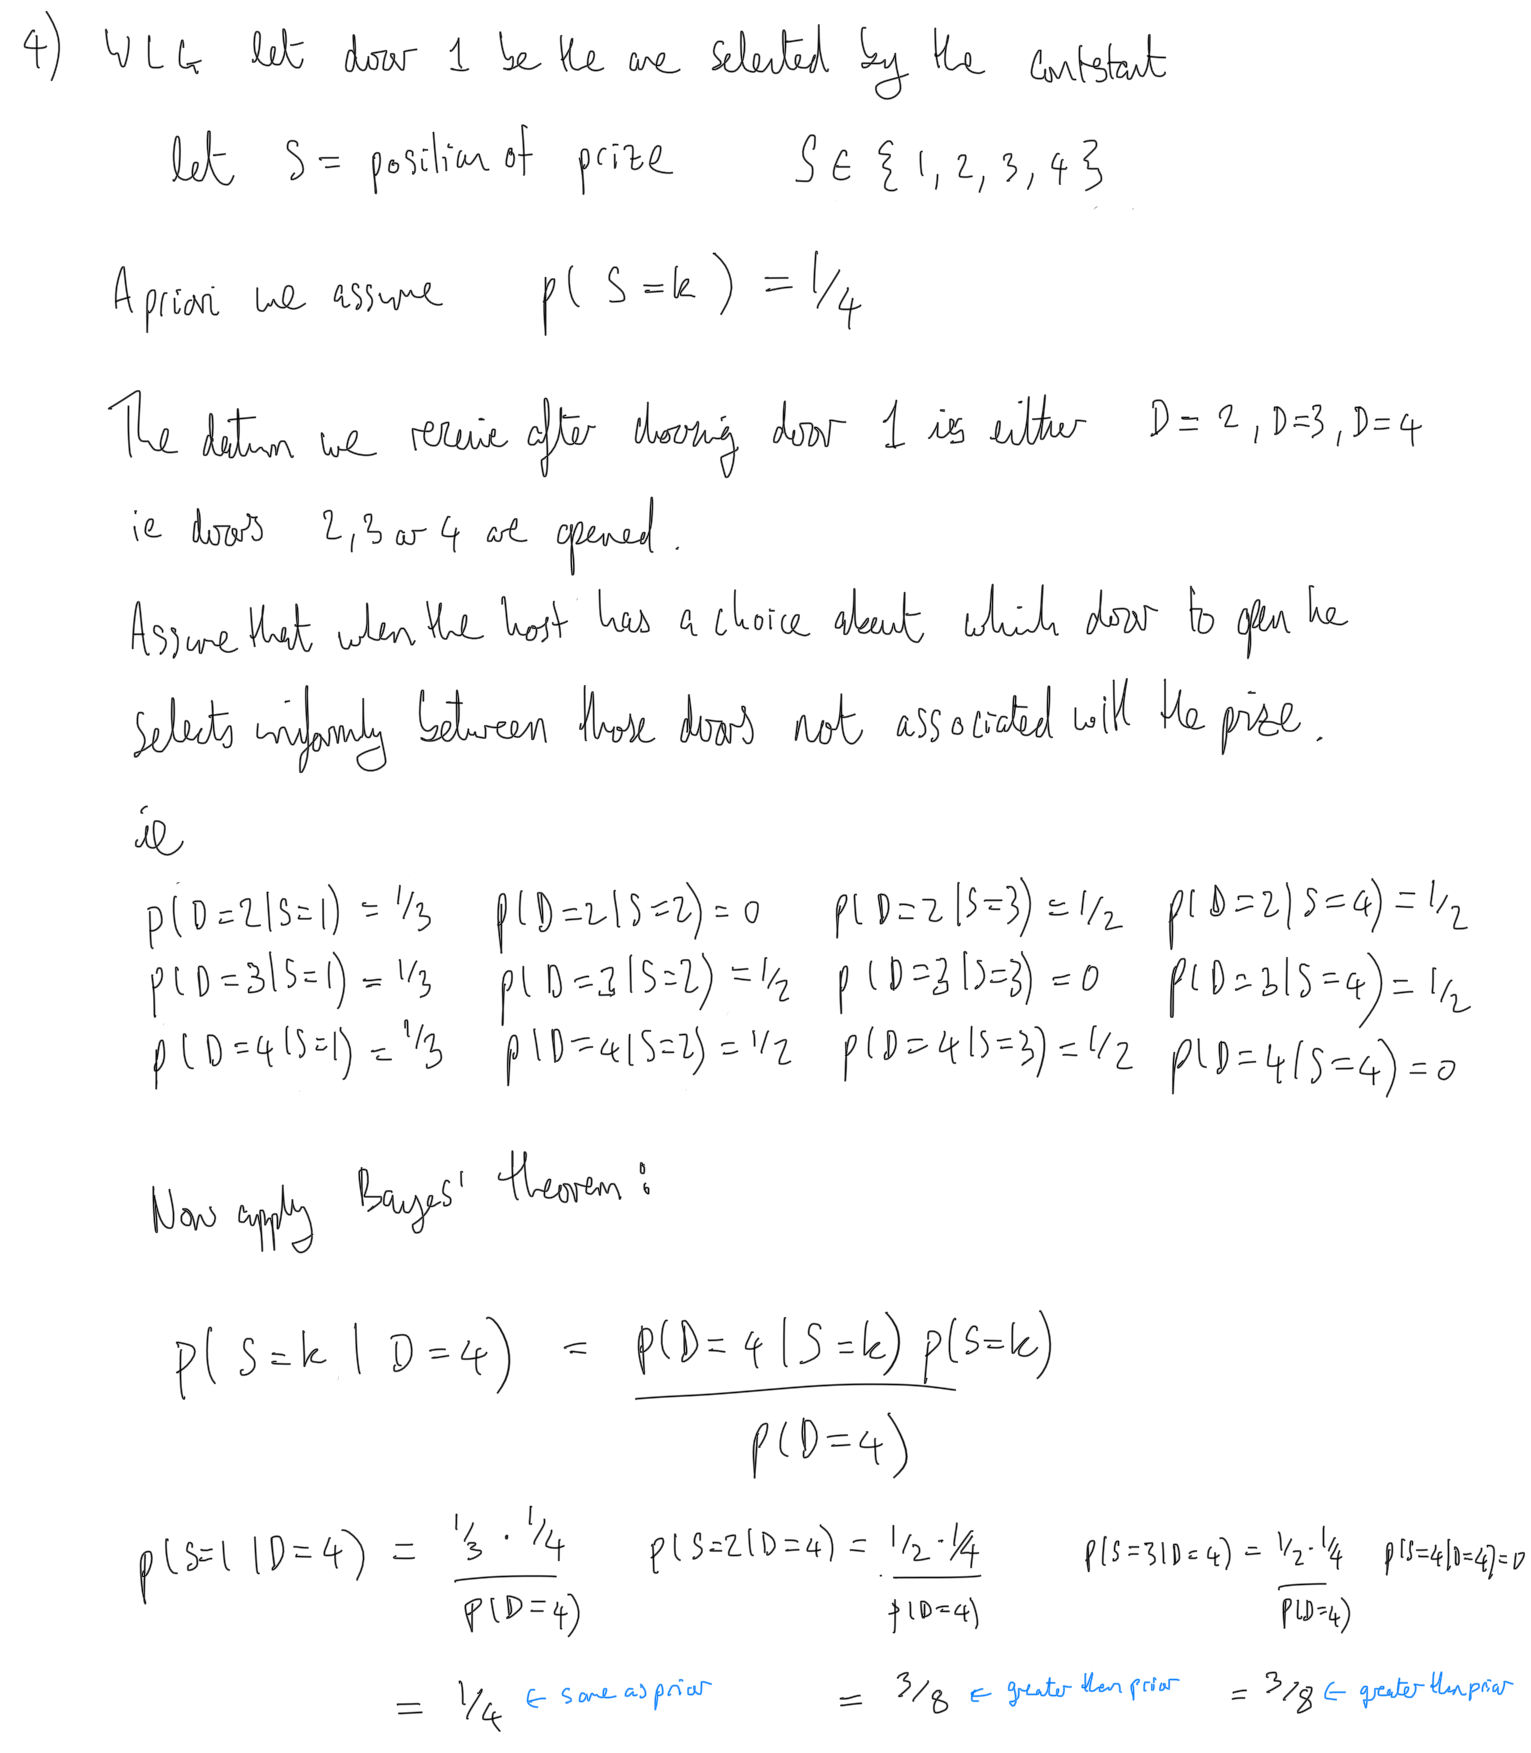 4) WLG let door 1 be the one selected by the contestant
let S = position of prize S ∈ {1, 2, 3, 4}
A priori we assume p(S=k) = 1/4
The datum we receive after choosing door 1 is either D = 2, D=3, D=4
ie doors 2, 3 or 4 are opened.
Assume that when the host has a choice about which door to open he
selects uniformly between those doors not associated with the prize.
ie
p(D=2|S=1) = 1/3 p(D=2|S=2) = 0 p(D=2|S=3) = 1/2 p(D=2|S=4) = 1/2
p(D=3|S=1) = 1/3 p(D=3|S=2) = 1/2 p(D=3|S=3) = 0 p(D=3|S=4) = 1/2
p(D=4|S=1) = 1/3 p(D=4|S=2) = 1/2 p(D=4|S=3) = 1/2 p(D=4|S=4) = 0
Now apply Bayes' theorem:
p(S=k | D=4) = p(D=4|S=k) p(S=k)
p(D=4)
p(S=1|D=4) = 1/3 · 1/4 p(S=2|D=4) = 1/2 · 1/4 p(S=3|D=4) = 1/2 · 1/4 p(S=4|D=4)=0
p(D=4) p(D=4) p(D=4)
= 1/4 ← same as prior = 3/8 ← greater than prior = 3/8 ← greater than prior